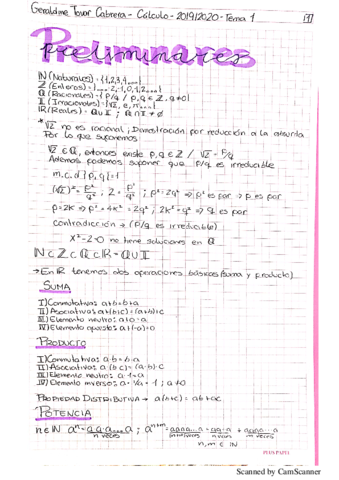 Geraldine Tovar Cabrera - Cálculo - 2019/2020 - Tema 1
Preliminares
ℕ (Naturales) = {1,2,3,4,...}
ℤ (Enteros) = {... -2,-1,0,1,2,...}
ℚ (Racionales) = {p/q / p,q ∈ ℤ, q≠0}
𝕀 (Irracionales) = {√2, e, π, ...}
ℝ (Reales) = ℚ ∪ 𝕀 ; ℚ ∩ 𝕀 = ∅
* √2 no es racional; Demostración por reducción a la absurda
Por lo que suponemos:
√2 ∈ ℚ, entonces existe p,q ∈ ℤ / √2 = p/q
Además podemos suponer que p/q es irreducible
m.c.d {p,q} = 1
(√2)² = p²/q² ; 2 = p²/q² ; p² = 2q² ⇒ p² es par → p es par
p = 2k ⇒ p² = 4k² = 2q² ; 2k² = q² ⇒ q es par
contradicción → (p/q es irreducible)
x² - 2 = 0 no tiene soluciones en ℚ
ℕ ⊂ ℤ ⊂ ℚ ⊂ ℝ = ℚ ∪ 𝕀
→ En ℝ tenemos dos operaciones básicas (suma y producto)
SUMA
I) Conmutativa: a+b = b+a
II) Asociativa: a+(b+c) = (a+b)+c
III) Elemento neutro: a+0 = a
IV) Elemento opuesto: a+(-a) = 0
PRODUCTO
I) Conmutativa: a·b = b·a
II) Asociativa: a·(b·c) = (a·b)·c
III) Elemento neutro: a·1 = a
IV) Elemento inverso: a·1/a = 1 ; a≠0
PROPIEDAD DISTRIBUTIVA → a(b+c) = ab+ac
POTENCIA
n ∈ ℕ aⁿ = a·a·a...a ; aⁿ⁺ᵐ = a·a·a...a = a·a···a · a·a·a...a
n veces n+m veces n veces m veces
n,m ∈ ℕ
Scanned by CamScanner